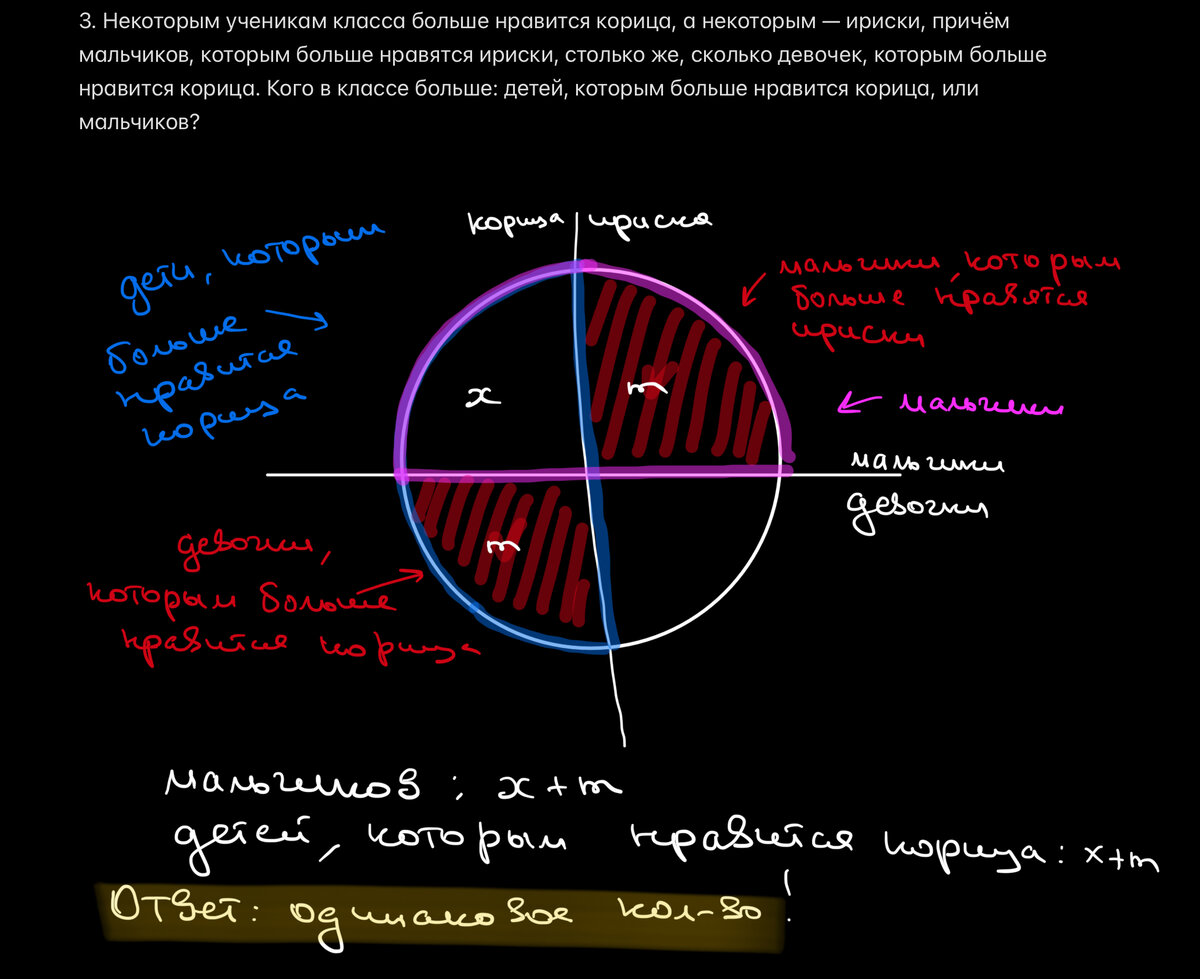 3. Некоторым ученикам класса больше нравится корица, а некоторым — ириски, причём
мальчиков, которым больше нравятся ириски, столько же, сколько девочек, которым больше
нравится корица. Кого в классе больше: детей, которым больше нравится корица, или
мальчиков?
корица | ириска
дети, которым
больше
нравится
корица
мальчики, которым
больше нравятся
ириски
x
m
мальчики
мальчики
девочки
m
девочки,
которым больше
нравится корица
мальчиков : x + m
детей, которым нравится корица : x+m
Ответ: одинаковое кол-во !